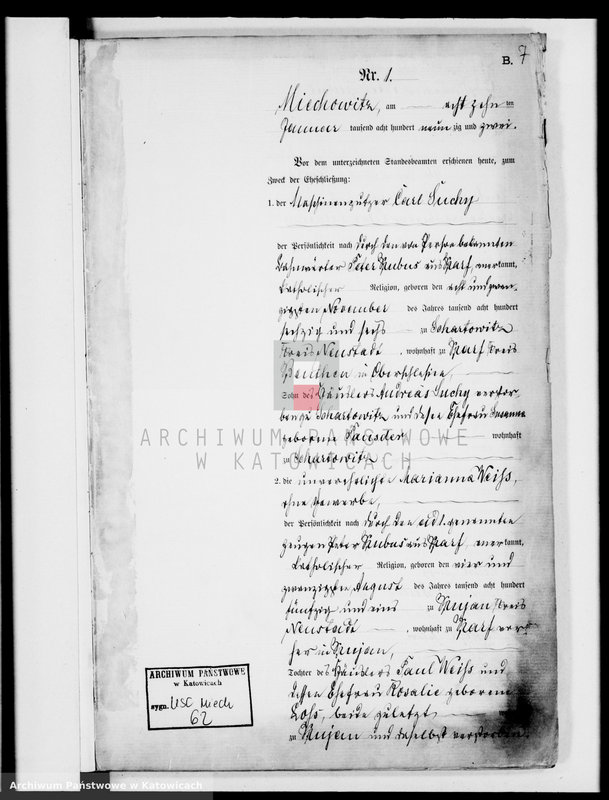 B. 7
Nr. 1.
Miechowitz, am acht zehn ten
Januar tausend acht hundert neun zig und zwei.
Vor dem unterzeichneten Standesbeamten erschienen heute, zum
Zweck der Eheschließung:
1. der Maschinenputzer Carl Suchy
der Persönlichkeit nach durch den von Person bekannten
Bahnwärter Peter Kubus aus Karf, anerkannt,
katholischer Religion, geboren den acht und zwan-
zigsten November des Jahres tausend acht hundert
sechzig und sechs zu Schartowitz
Kreis Neustadt, wohnhaft zu Karf Kreis
Beuthen in Oberschlesien,
Sohn des Häuslers Andreas Suchy verstor-
ben zu Schartowitz und dessen Ehefrau Susanna
geborene wohnhaft
zu Schartowitz
2. die unverehelichte Marianna Weiß,
ohne Gewerbe,
der Persönlichkeit nach durch den ad 1. genannten
Zeugen Peter Kubus aus Karf, anerkannt,
katholischer Religion, geboren den vier und
zwanzigsten August des Jahres tausend acht hundert
fünfzig und eins zu Kujau Kreis
Neustadt, wohnhaft zu Karf vor-
her in Kujau,
Tochter des Häuslers Paul Weiß und
dessen Ehefrau Rosalie geborene
beide zuletzt
zu Kujau und daselbst verstorben.
ARCHIWUM PAŃSTWOWE
W KATOWICACH
ARCHIWUM PAŃSTWOWE
w Katowicach
sygn. USC Miech
62
Archiwum Państwowe w Katowicach